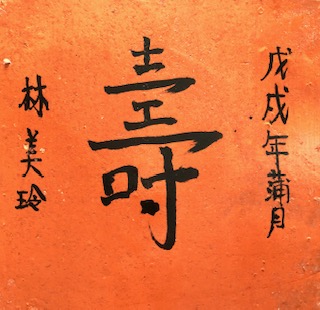 戊戌年蒲月
壽
林美玲